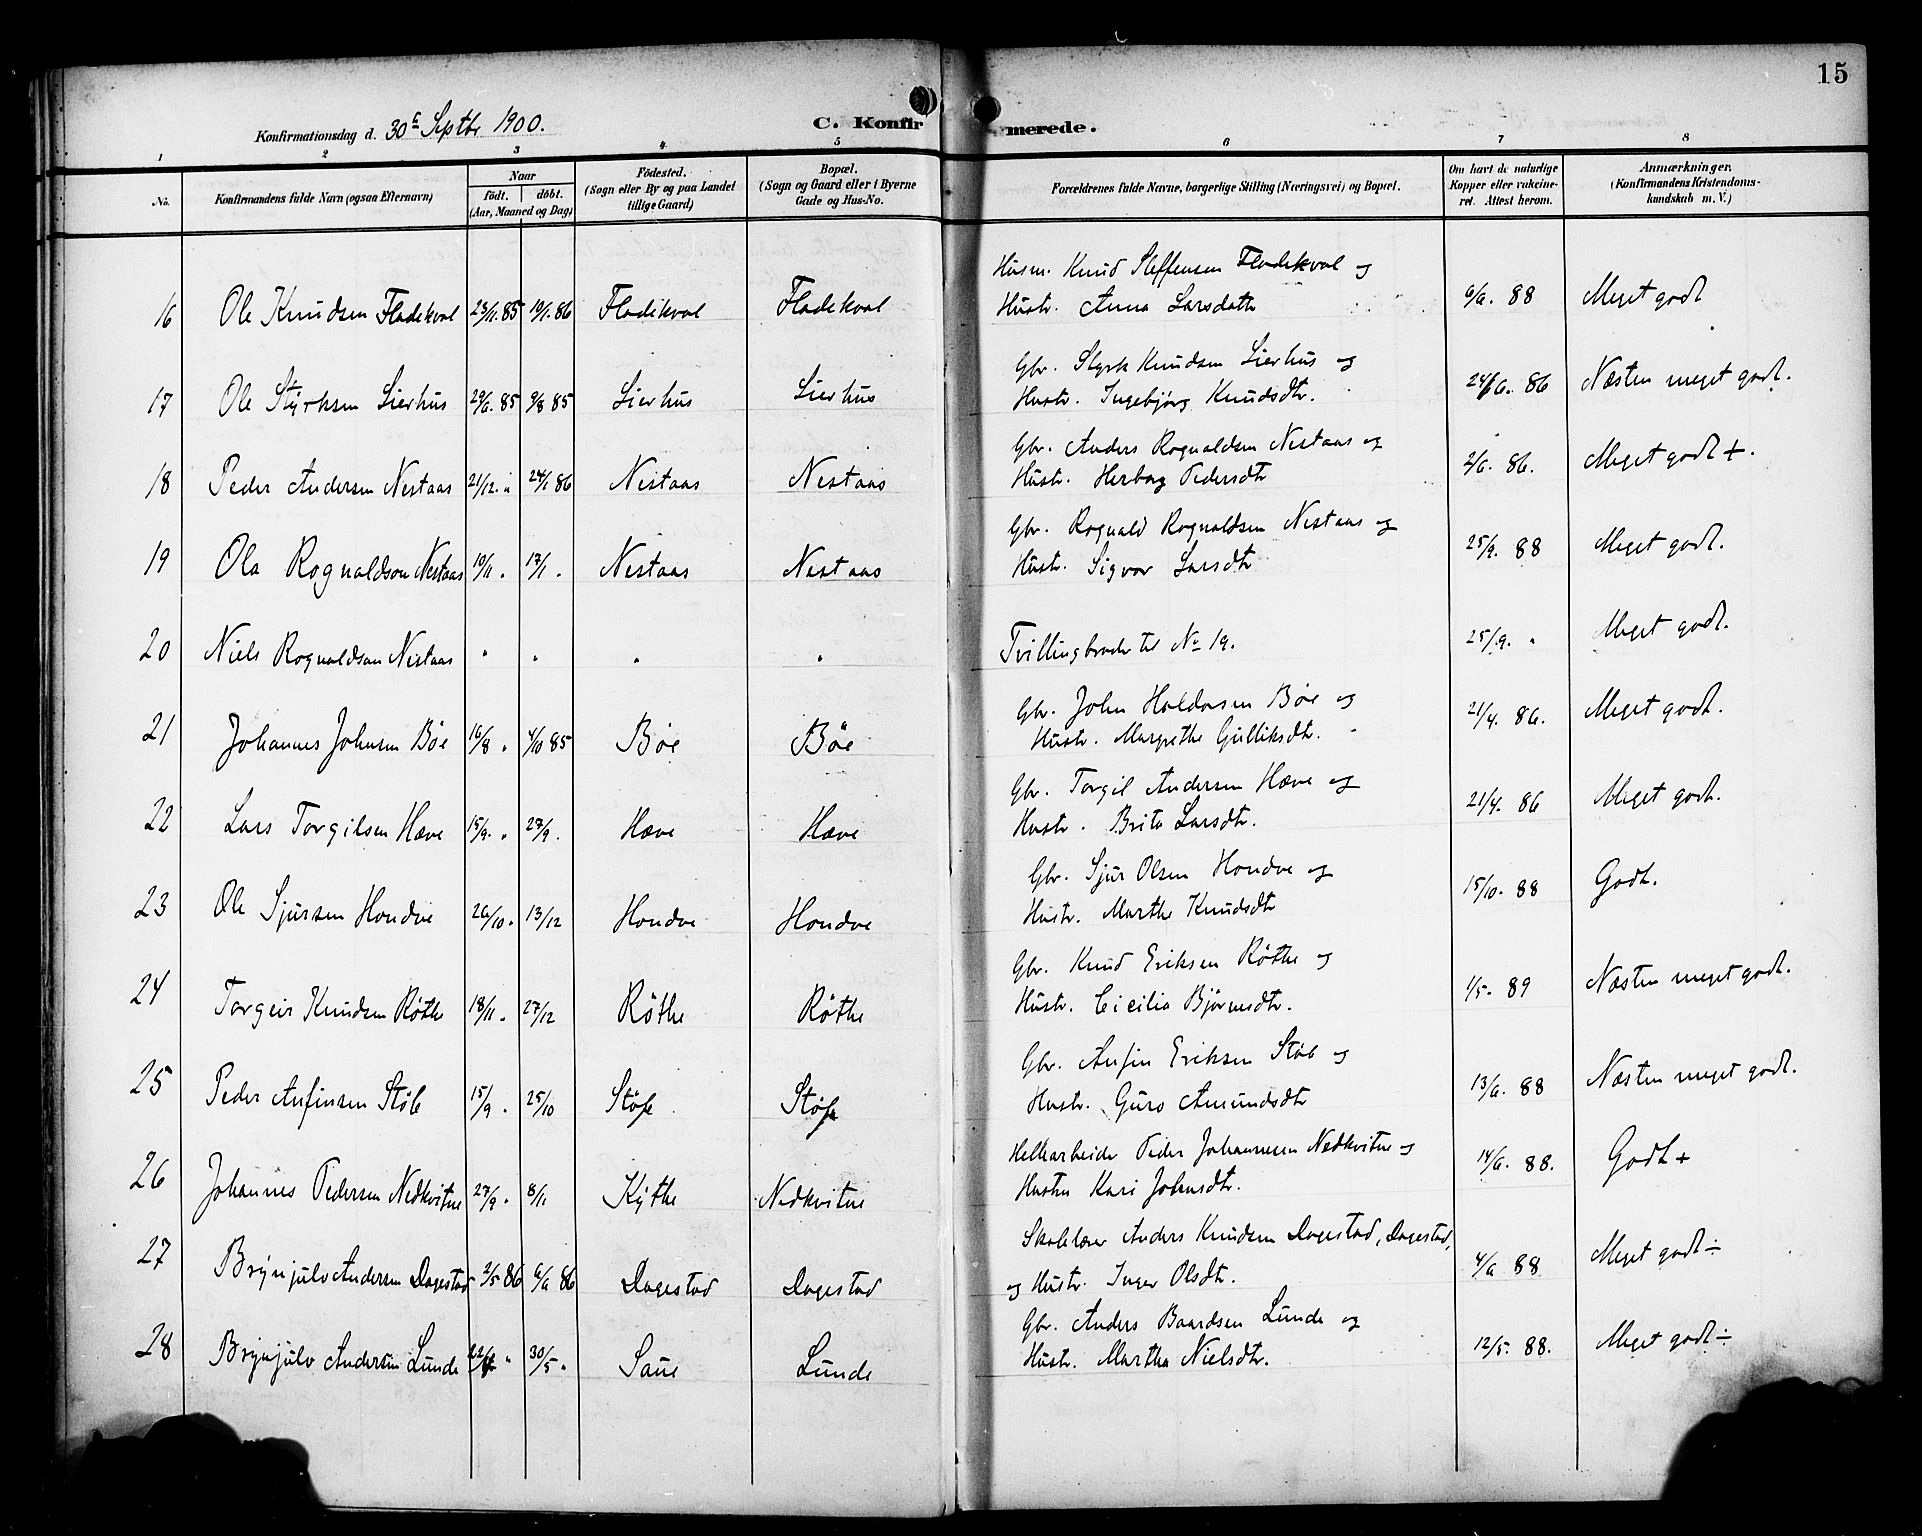 15
Konfirmationsdag d. 30te Septbr 1900. C. Konfirmerede.
1 2 3 4 5 6 7 8
No. Konfirmandens fulde Navn (ogsaa Efternavn) Naar födt. döbt. (Aar, Maaned og Dag) Födested. (Sogn eller By og paa Landet tillige Gaard) Bopæl. (Sogn og Gaard eller i Byerne Gade og Hus-No. Forældrenes fulde Navne, borgerlige Stilling (Næringsvei) og Bopæl. Om havt de naturlige Kopper eller vakcineret. Attest herom. Anmærkninger. (Konfirmandens Kristendomskundskab m. V.)
Husm. Knud Steffensen Fladekval og
16 Ole Knudsen Fladekval 23/11. 85 19/1. 86 Fladekval Fladekval Hustr. Anna Larsdatter 6/6. 88 Meget godt
Gbr. Styrk Knudsen Lierhus og
17 Ole Styrksen Lierhus 29/6. 85 9/8 85 Lierhus Lierhus Hustr. Ingebjörg Knudsdtr. 24/6. 86 Næsten meget godt.
Gbr. Anders Rognaldsen Nestaas og
18 Peder Andersen Nestaas 21/12. " 24/1 86 Nestaas Nestaas Hustr. Herborg Pedersdtr 2/6. 86. Meget godt +.
Gbr. Rognald Rognaldsen Nestaas og
19 Ola Rognaldson Nestaas 10/11 " 17/1 " Nestaas Nestaas Hustr. Sigvor Larsdtr 25/9. 88 Meget godt.
20 Niels Rognaldsen Nestaas " " " " Tvillingbroder til No 19. 25/9. " Meget godt.
Gbr. John Haldorsen Bøe og
21 Johannes Johnsen Bøe 16/8 " 4/10 85 Bøe Bøe Hustr. Margrethe Gulliksdtr. 21/4. 86. Meget godt.
Gbr. Torgil Andersen Hæve og
22 Lars Torgilsen Hæve 15/9. " 27/9. Hæve Hæve Hustr. Brita Larsdtr. 21/4. 86 Meget godt.
Gbr. Sjur Olsen Hondve og
23 Ole Sjursen Hondve 26/10. 13/12 Hondve Hondve Hustr. Marthe Knudsdtr 15/10. 88 Godt.
Gbr. Knud Eriksen Røthe og
24 Torgeir Knudsen Røthe 18/11 " 27/12 Røthe Røthe Hustr. Cicilia Bjørnsdtr. 1/5. 89 Næsten meget godt.
Gbr. Anfin Eriksen Støle og
25 Peder Anfinsen Støle 15/9 " 25/10 Støle Støle Hustr. Guro Amundsdtr 13/6. 88 Næsten meget godt.
Peder Johannesen Nedkvitne og
26 Johannes Pedersen Nedkvitne 27/9 " 8/11 Kythe Nedkvitne Hustru Kari Johnsdtr. 14/6. 88. Godt +
Skolelærer Anders Knudsen Dagestad, Dagestad,
27 Brynjulv Andersen Dagestad 2/5 86 6/6 86 Dagestad Dagestad og Hustr. Inger Olsdtr. 4/6 88 Meget godt ÷
Gbr. Anders Baardsen Lunde og
28 Brynjulv Andersen Lunde " 30/5 " Saue Lunde Hustr. Martha Nielsdtr. 12/5. 88. Meget godt ÷